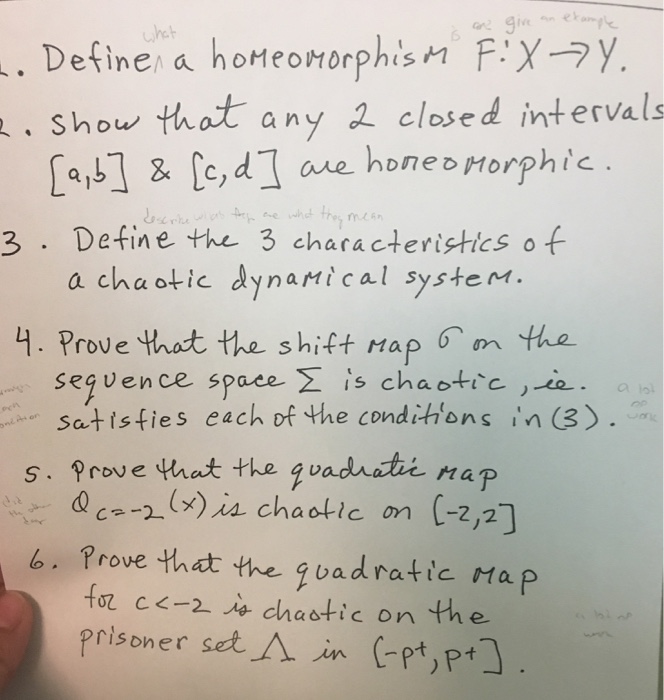 what is and give an example
1. Define a homeomorphism F: X → Y.
2. Show that any 2 closed intervals
[a,b] & [c,d] are homeomorphic.
what they mean
3. Define the 3 characteristics of
a chaotic dynamical system.
4. Prove that the shift map σ on the
sequence space Σ is chaotic, ie.
satisfies each of the conditions in (3).
a lot
work
5. Prove that the quadratic map
Q c=-2 (x) is chaotic on [-2,2]
6. Prove that the quadratic map
for c<-2 is chaotic on the
prisoner set Λ in [-p+, p+].